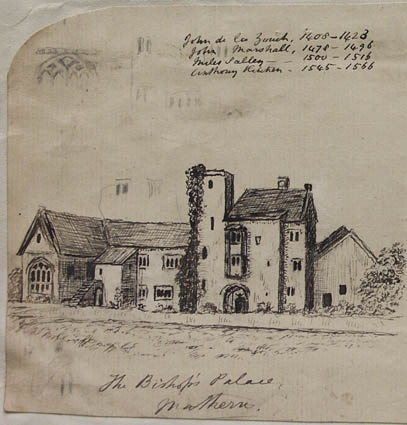 John de la Zouch, 1408-1423
John Marshall, 1478-1496
Miles Salley — 1500-1516
Anthony Kitchen - 1545-1566
The Bishop's Palace,
Mathern.